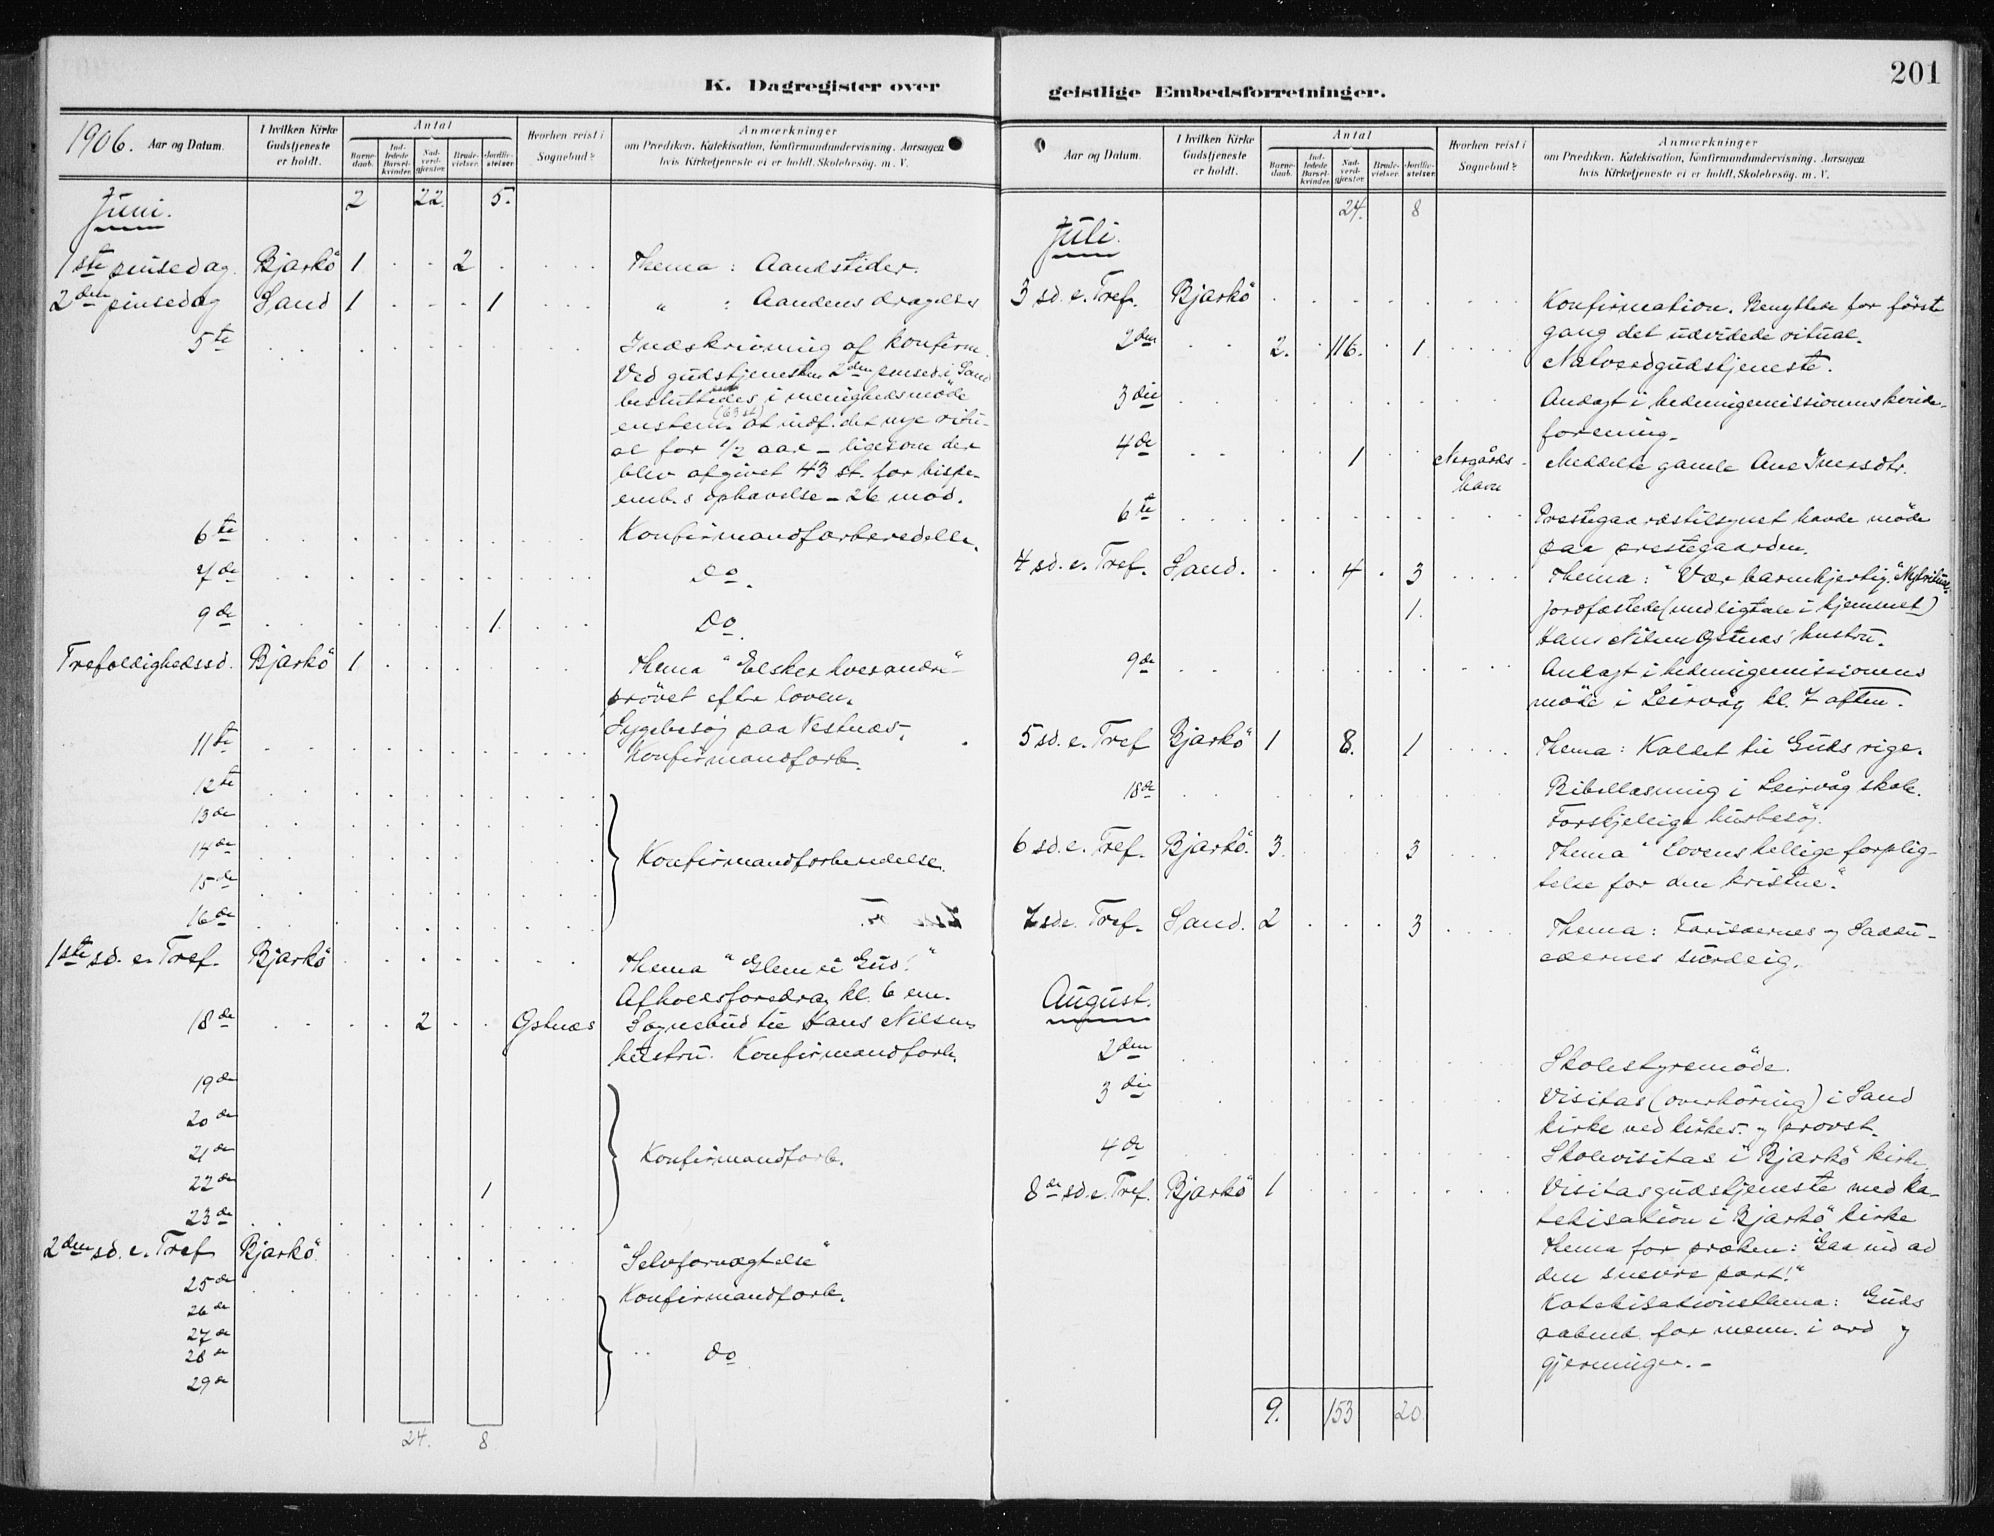 K. Dagregister over
1906. Aar og Datum.
I hvilken Kirke Gudstjeneste er holdt.
Antal
Barnedaab.
Indledede Barselkvinder.
Nadverdgjæster.
Brudevielser.
Jordfæstelser.
Hvorhen reist i Sognebud?
Anmærkninger
om Prædiken, Katekisation, Konfirmandundervisning, Aarsagen
hvis Kirketjeneste ei er holdt, Skolebesög. m. V.
Juni. 2 22. 5.
1ste pinsedag. Bjarkö 1 2 Thema: Aandstider.
2den pinsedag Sand 1 1 " : Aandens dragelse
5te Indskrivning af konfirm.
Ved gudstjenesten 2den pinsed. i Sand
besluttedes i menighedsmöde
enstem. (63 st) at indf. det nye ritu-
al for 1/2 aar – ligesom der
blev afgivet 43 st. for bispe-
emb.s ophævelse – 26 mod.
6te Konfirmandforberedelse.
7de Do.
9de 1 Do.
Trefoldighedssd. Bjarkö 1 Thema "Elsker hverandre"
prövet efter loven.
Sygebesög paa Vestnæs.
11te Konfirmandforb.
12te
13de
14de Konfirmandforberedelse.
15de
16de
1ste sd. e. Tref. Bjarkö Thema "Glem ei Gud!"
Afholdsforedrag kl. 6 em.
18de 2 Östnæs Sognebud til Hans Nilsens
hustru. Konfirmandforb.
19de
20de
21de Konfirmandforb.
22de 1
23de
2den sd. e. Tref Bjarkö "Selvfornægtelse"
25de Konfirmandforb.
26de
27de
28de " do
29de
24. 8
201
geistlige Embedsforretninger.
Aar og Datum.
I hvilken Kirke Gudstjeneste er holdt.
Antal
Barnedaab.
Indledede Barselkvinder.
Nadverdgjæster.
Brudevielser.
Jordfæstelser.
Hvorhen reist i Sognebud?
Anmærkninger
om Prædiken, Katekisation, Konfirmandundervisning, Aarsagen
hvis Kirketjeneste ei er holdt, Skolebesög. m. V.
24. 8
Juli.
3 sd. e. Tref. Bjarkö Konfirmation. Benyttede for förste
gang det udvidede ritual.
2den 2. 116. 1 Natverdgudstjeneste.
3die Andagt i hedningemissionens kvinde-
forening.
4de 1 Nergårdshavn Meddelte gamle Ane Iversdtr.
6te Prestegaardstilsynet havde möde
paa prestegaarden.
4 sd. e. Tref. Sand. 4 3 Thema: "Vær barmhjertig." Nyt ritual.
1. Jordfæstede (med ligtale i hjemmet)
Hans Nilsen Östnæs' hustru.
9de Andagt i hedningemissionens
möde i Leirvåg kl. 7 aften.
5 sd. e. Tref Bjarkö 1 8. 1 Thema: Kaldet til Guds rige.
18de Bibellæsning i Leirvåg skole.
Forskjellige husbesög.
6 sd. e. Tref. Bjarkö. 3. 3 Thema "Lovens hellige forplig-
telse for den kristne".
7 sd e. Tref. Sand. 2 3 Thema: Farisæernes og Saddu-
cæernes surdeig.
August.
2den Skolestyremöde.
3die Visitas (overhöring) i Sand
kirke ved kirkes. og provst.
4de Skolevisitas i Bjarkö kirke
8de sd. e. Tref. Bjarkö 1 Visitasgudstjeneste med ka-
tekisation i Bjarkö kirke
Thema for præken: "Gaa ind ad
den snevre port!"
Katekisationsthema: Guds
aabenb. for menn. i ord og
gjerninger. –
9. 153 20.